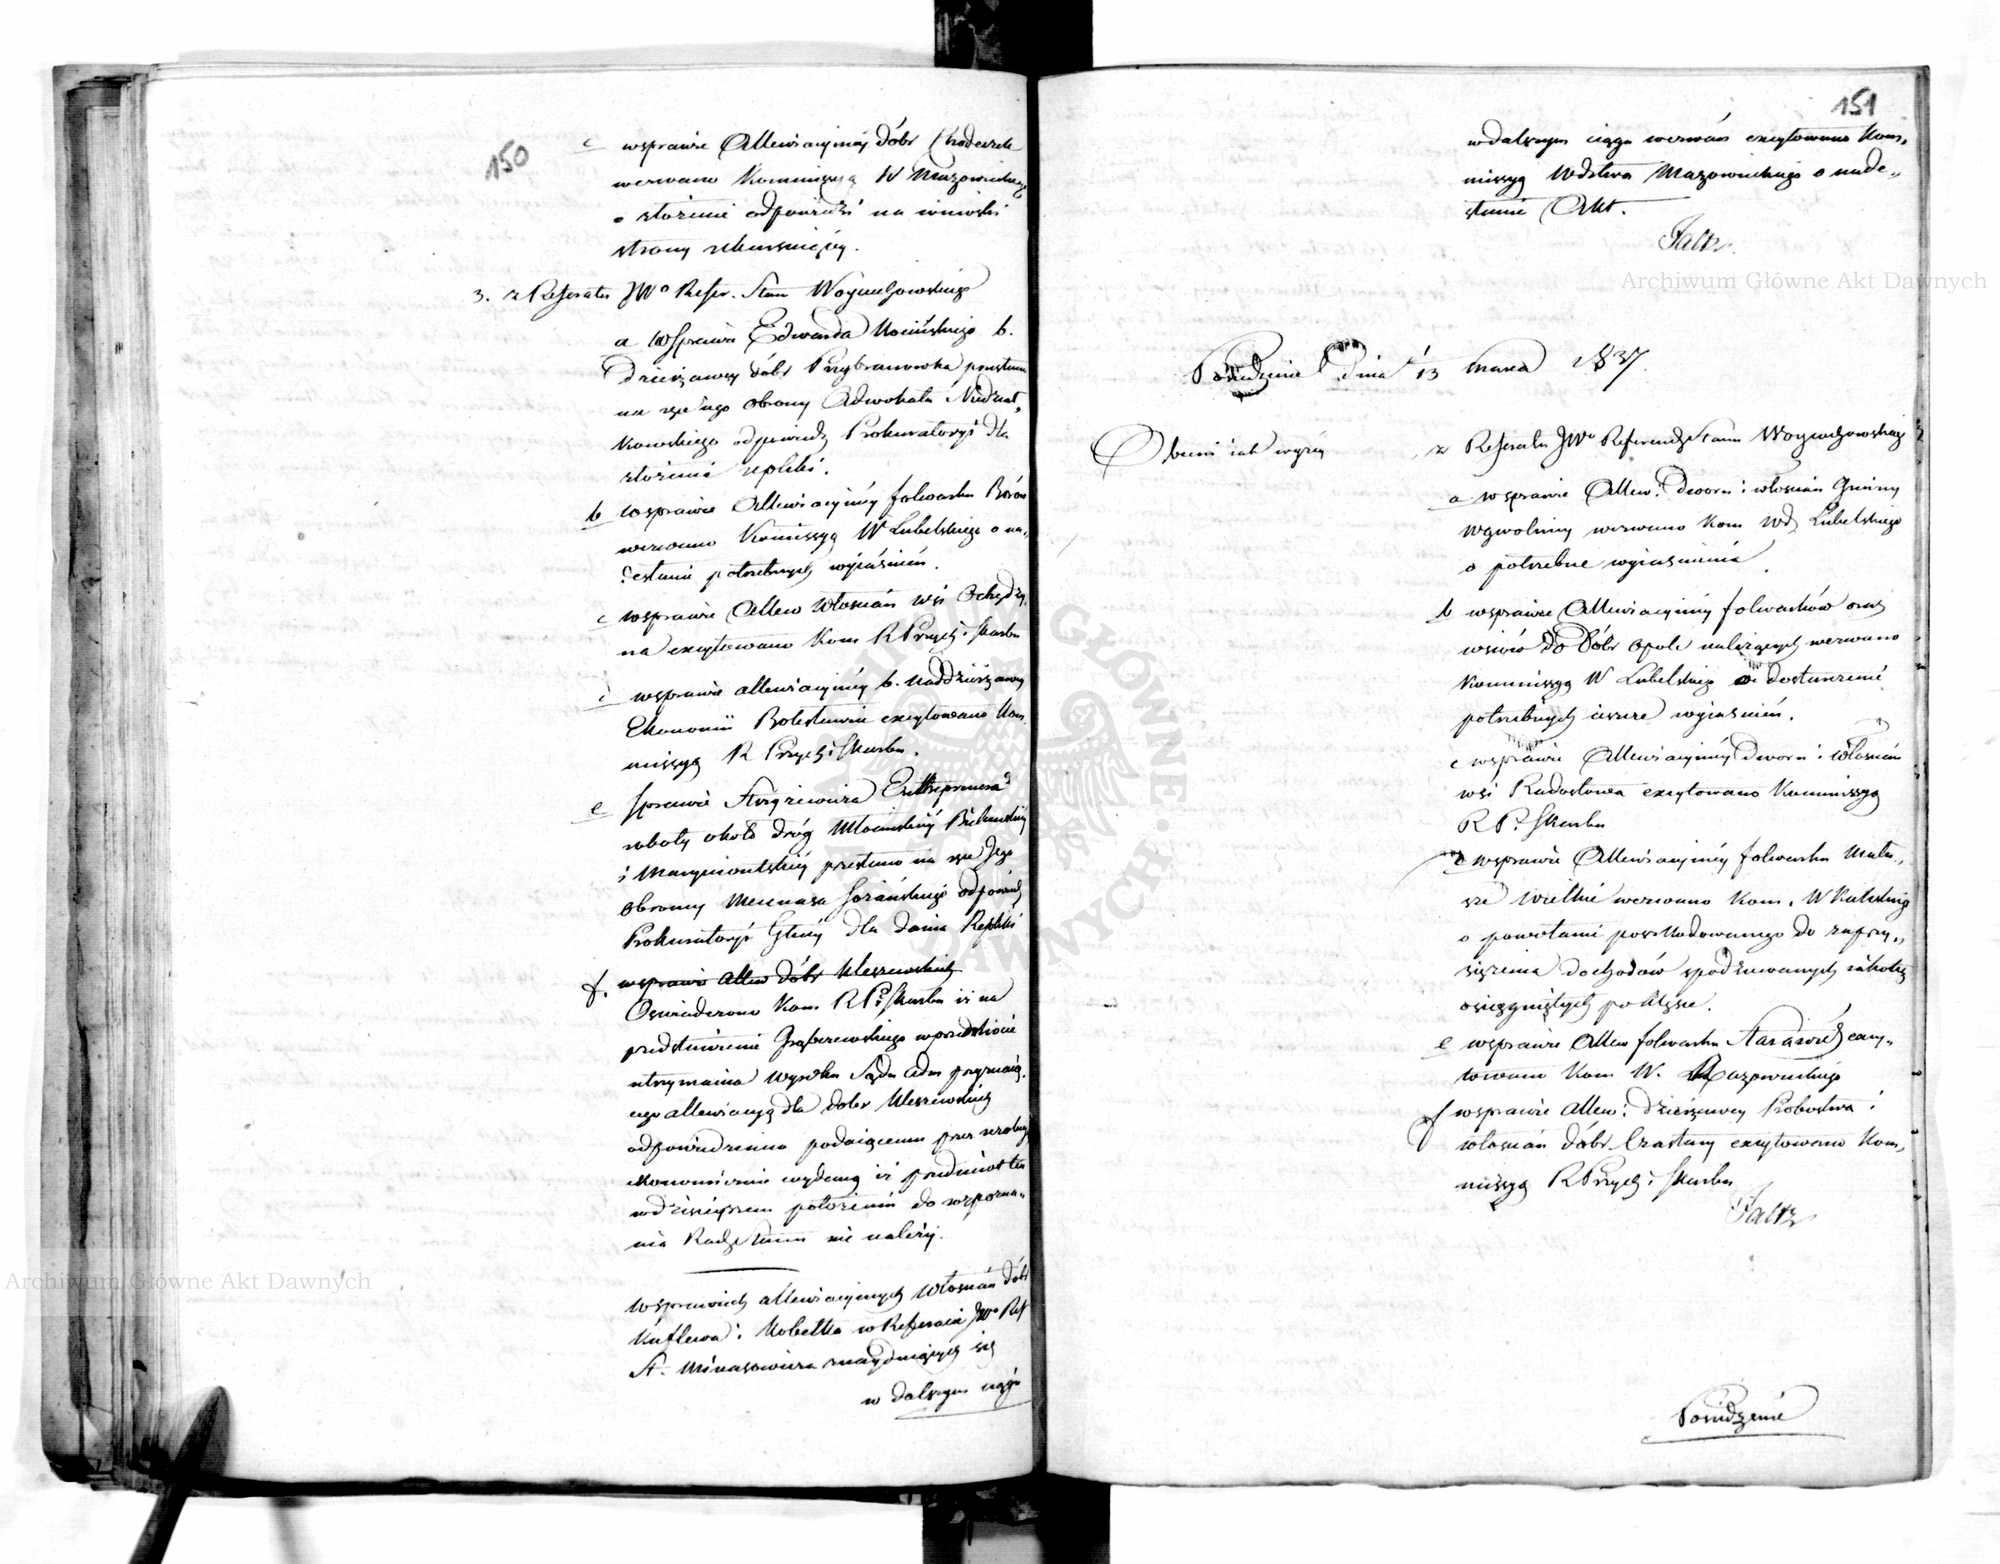 150
c wsprawie Allewiacyiney dóbr Chodeczek
wezwano Kommissyą W Mazowieckiego
o złożenie odpowiedzi na wnioski
strony rekursuiącey.
3. z Referatu JWo Refer. Stanu Woyciechowskiego
a wSprawie Edwarda Kocińskiego b.
Dzierżawcy dóbr Przybranowka przesłano
na ręce iego obrony Adwokata Niedział„
kowskiego odpowiedz Prokuratoryi dla
złożenia repliki.
b wsprawie Allewiacyiney folwarku Borów
wezwano Kommissyą W Lubelskiego o na„
desłanie potrzebnych wyiaśnień.
c wsprawie Allew Włościan wsi
na excytowano Kom R Przych i Skarbu
wsprawie allewiacyiney b. Naddzierżawcy
Ekonomii Bolesławice excytowano Kom
missyą R Przych i Skarbu.
e Sprawie Entreprenera
roboty około dróg Młocińskiey Bielańskiey
i Marymontskiey przesłano na ręce Jego
obrony Mecenasa odpowiedz
Prokuratoryi Głney dla dania Repliki
f. wsprawie allew dóbr Kleszewskich
Oświadczono Kom R P. i Skarbu iż na
przedstawienie wprzedmiocie
utrzymania wyroku Sądu Adm przyznaią„
cego allewiacyą dla dobr Kleszewskich
odpowiedziano podaiącemu przez rezolucyą
wydaną iż przedmiot ten
wdzisieyszem położeniu do rozpozna„
nia Rady Stanu nie należy.
Wsprawach allewiacyinych Włościan dóbr
Kuflewa i Kobełka wReferacie JWo Ref
St. Minasowicza znayduiących się
w dalszym ciągu
151
wdalszym ciągu wezwań excytowano Kom„
missyą Wdztwa Mazowieckiego o nade„
słanie Akt.
Faltz.
Posiedzenie Dnia 1/13 Marca 1837.
Obecni iak wyżey
z Referatu JWo Referendz Stanu Woyciechowskiego
a wsprawie Allew. Dworu i włościan Gminy
Wywolney wezwano Kom Wdz Lubelskiego
o potrzebne wyiaśnienia.
b wsprawie Allewiacyiney folwarków oraz
wsiów do Dóbr Opole należących wezwano
Kommissyą W Lubelskiego o dostarczenie
potrzebnych ieszcze wyiaśnień.
c wsprawie Allewiacyiney Dworu i Włościan
wsi Radostowa excytowano Kommissyą
R P. i Skarbu
d wsprawie Allewiacyiney folwarku Matu„
sze Wielkie wezwano Kom. W Kaliskiego
o powołanie poszkodowanego do zaprzy„
siężenia dochodów spodziewanych
osiągniętych po klęsce.
e wsprawie Allew folwarku Starawieś excy„
towano Kom W. Mazowieckiego
f wsprawie Allew: Dzierżawcy Probostwa i
włościan dóbr Czastary excytowano Kom„
missyą R Przych i Skarbu
Faltz
Posiedzenie
Archiwum Główne Akt Dawnych
Archiwum Główne Akt Dawnych